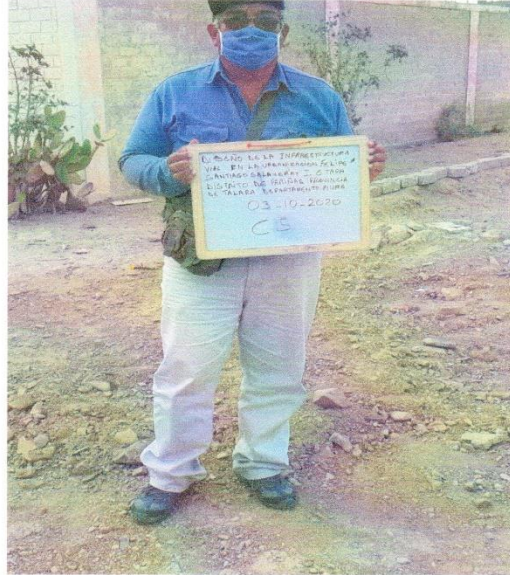 DISEÑO DE LA INFRAESTRUCTURA
VIAL EN LA URBANIZACION FELIPE
SANTIAGO SALAVERRY I ETAPA
DISTRITO DE PARIÑAS PROVINCIA
DE TALARA DEPARTAMENTO PIURA
03-10-2020